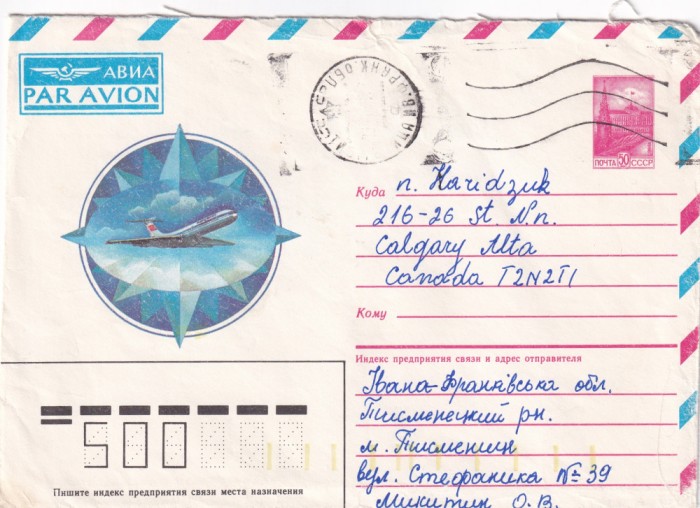 АВИА
PAR AVION
ПОЧТА 50 СССР
Куда п. Haridzuk
216-26 St. N.n.
Calgary Alta
Canada T2N2T1
Кому
Индекс предприятия связи и адрес отправителя
Івано-Франківська обл.
Тисменецкий рн.
м. Тисмениц
вул. Стефаника № 39
Микитин О.В.
500
Пишите индекс предприятия связи места назначения